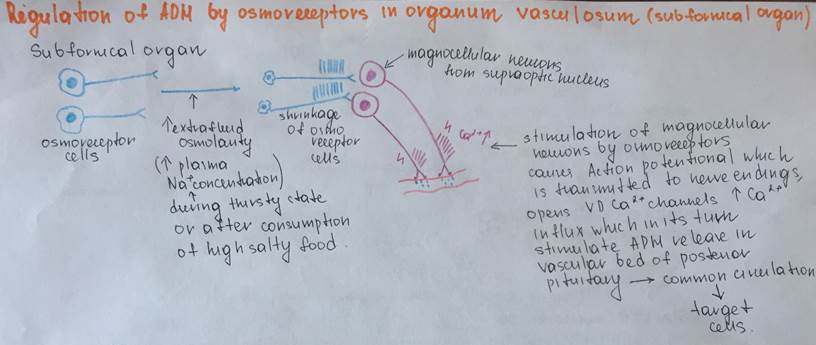 Regulation of ADM by osmoreceptors in organum vasculosum (subfornical organ)
Subfornical organ
osmoreceptor
cells
↑ extrafluid
osmolarity
(↑ plasma
Na⁺ concentration)
during thirsty state
or after consumption
of high salty food.
shrinkage
of osmo
receptor
cells
magnocellular neurons
from supraoptic nucleus
Ca²⁺↑
stimulation of magnocellular
neurons by osmoreceptors
causes Action potentional which
is transmitted to nerve endings,
opens VD Ca²⁺ channels ↑ Ca²⁺
influx which in its turn
stimulate ADM release in
vascular bed of posterior
pituitary → common circulation
↓
target
cells.